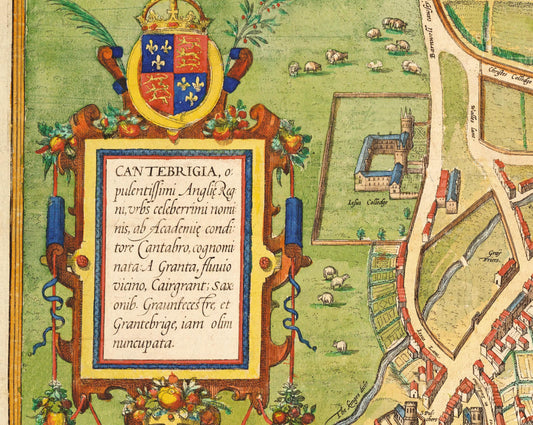 CANTEBRIGIA, o,
pulentißimi Anglię Reg
ni, vrbs celeberrimi nomi
nis, ab Academię condi
tore Cantabro, cognomi
nata: A Granta, fluuio
vicino, Cairgrant; sax
onib. Grauntecestre, et
Grantebrige, iam olim
nuncupata.
Iesus Colledge
Christes Colledge
Walles lane
Graȳ Friers
The Kinges ditch